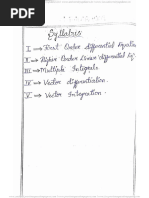 Syllabus
I ⇒ First Order Differential Equation
II ⇒ Higher Order Linear differential Eq.
III ⇒ Multiple Integrals
IV ⇒ Vector differentiation.
V ⇒ Vector Integration.